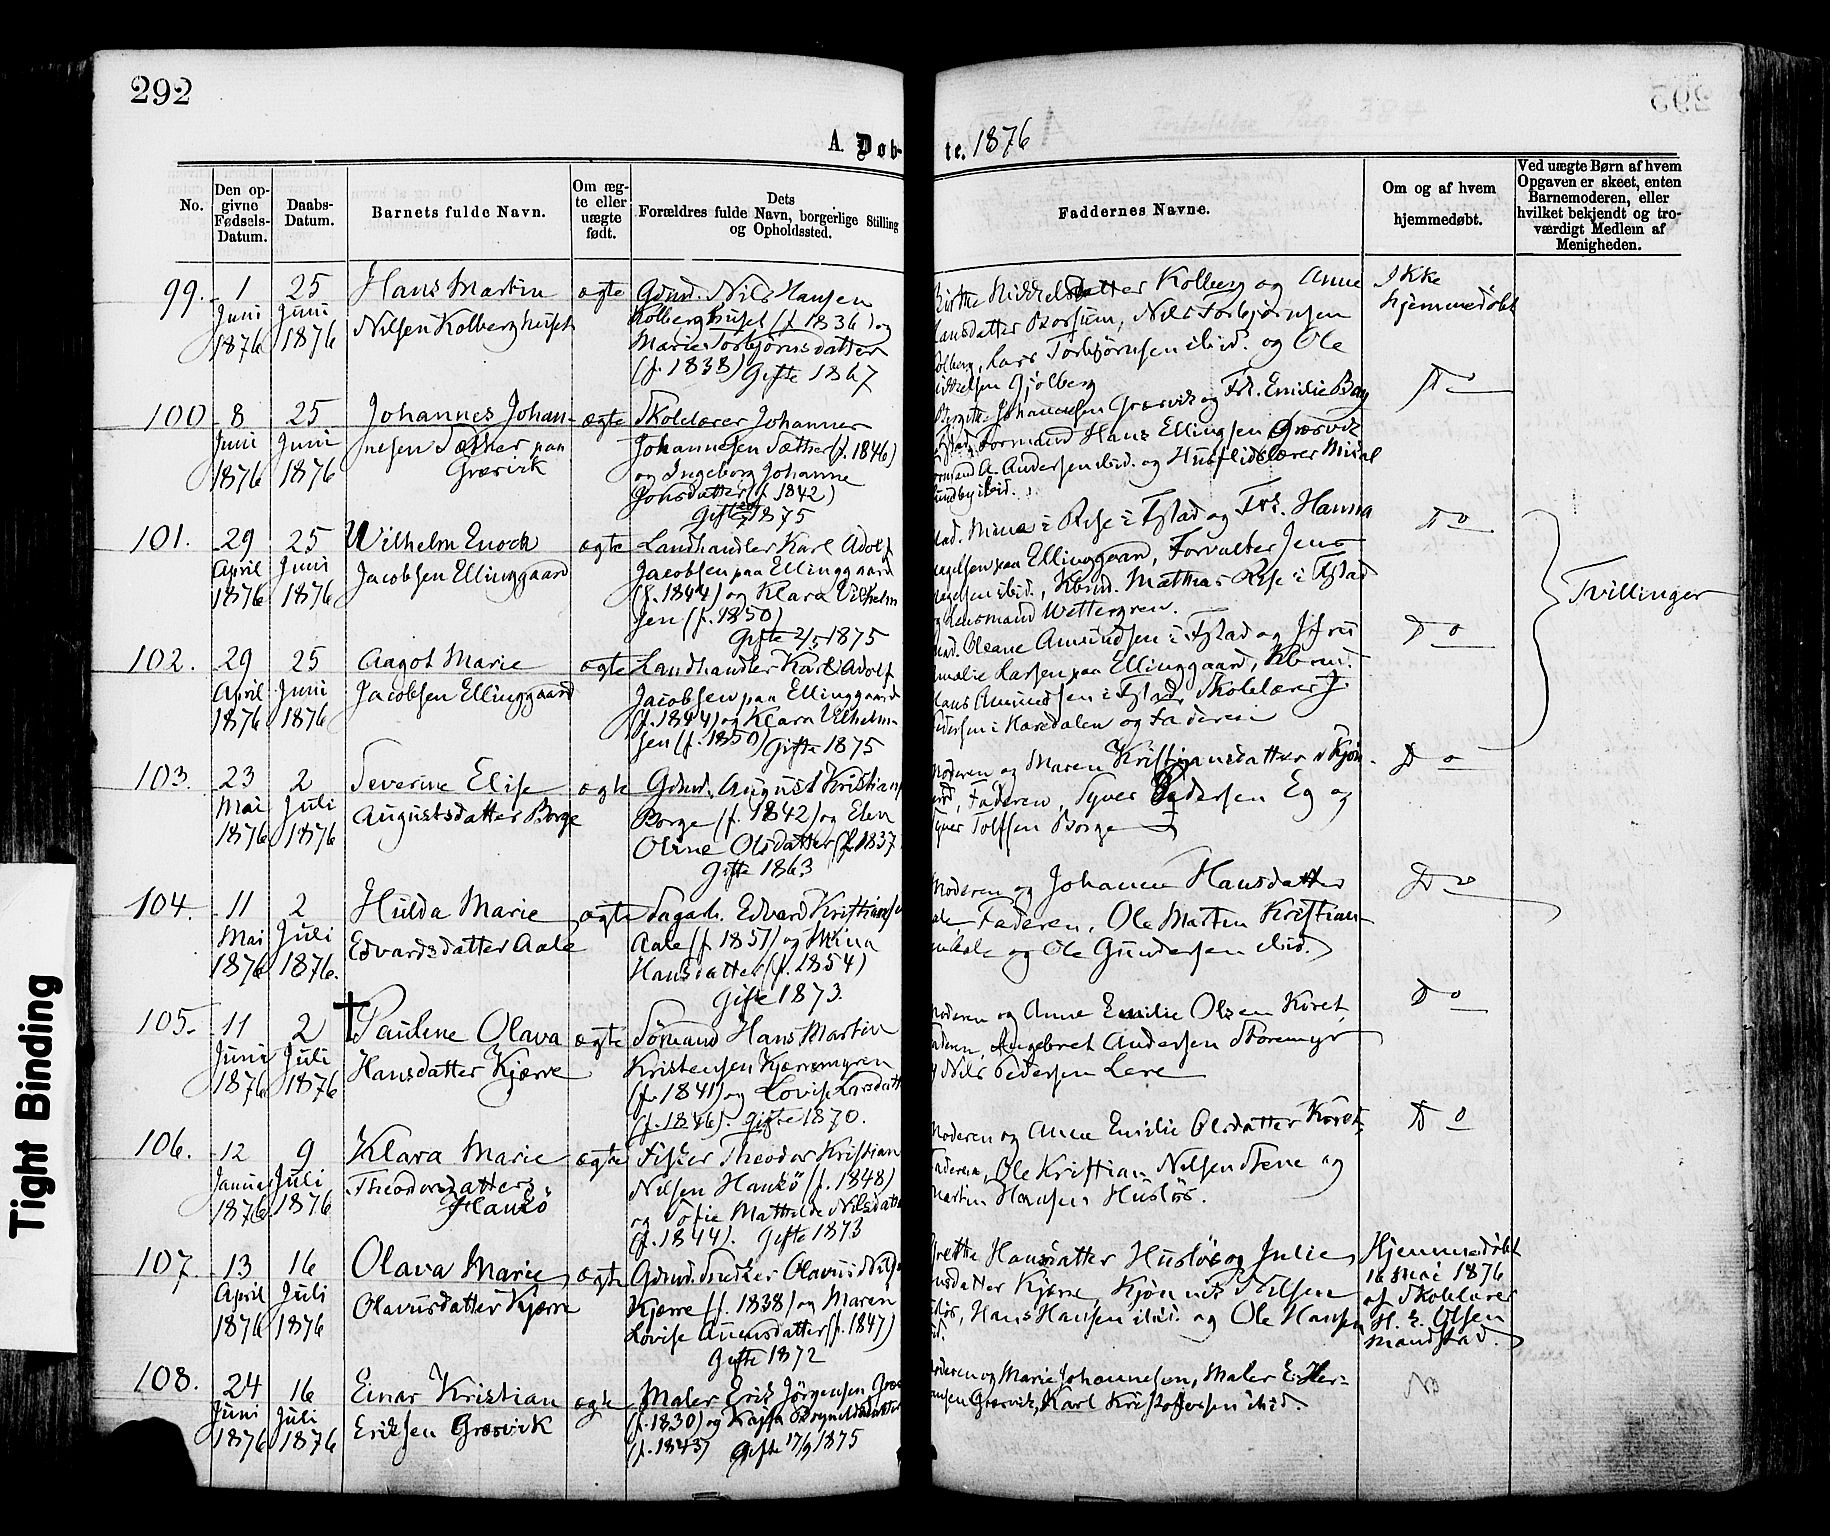 292
A. Døb-
te. 1876
No.
Den op-
givne
Fødsels-
Datum.
Daabs-
Datum.
Barnets fulde Navn.
Om æg-
te eller
uægte
født.
Dets
Forældres fulde Navn, borgerlige Stilling
og Opholdssted.
Faddernes Navne.
Om og af hvem
hjemmedøbt.
Ved uægte Børn af hvem
Opgaven er skeet, enten
Barnemoderen, eller
hvilket bekjendt og tro-
værdigt Medlem af
Menigheden.
99.
1
Juni
1876
25
Juni
1876
Hans Martin
Nilsen Kolberghuset
ægte
Gdmd. Nils Hansen
Kolberghuset (f. 1836) og
Marie Torbjørnsdatter
(f. 1838) Gifte 1867
Kolberg og Anne
Borsum, Nils Torbjørnsen
Lars Torbjørnsen ibid. og Ole
Gjølberg
Ikke
hjemmedøbt
100
8
Juni
1876
25
Juni
1876
Johannes Johan-
nesen Sæther paa
Græsvik
ægte
Skolelærer Johannes
Johannesen Sæther (f. 1846)
og Ingeborg Johanne
Jonsdatter (f. 1842)
Gifte 1875
Græsvik og Fr. Emilie
Formand Hans Ellingsen Græsvik
A. Andersen ibid. og Husflidslærer
ibid.
Do
101.
29
April
1876
25
Juni
1876
Wilhelm Enoch
Jacobsen Ellinggaard
ægte
Landhandler Karl Adolf
Jacobsen paa Ellinggaard
(f. 1844) og Klara Vilhelm
sen (f. 1850)
Gifte 2/5 1875
Mina i Rise i Fstad og Frk. Hanna
paa Ellinggaard, Forvalter Jens
ibid., Kbmd. Mathias Rise i Fstad
Lensmand Wettergren.
Do
Tvillinger
102.
29
April
1876
25
Juni
1876
Aagot Marie
Jacobsen Ellinggaard
ægte
Landhandler Karl Adolf
Jacobsen paa Ellinggaard
(f. 1844) og Klara Vilhelm-
sen (f. 1850) Gifte 1875
Oleane Amundsen i Fstad og Jfru
Larsen paa Ellinggaard, Kbmd.
Amundsen i Fstad, Skolelærer J.
i Haredalen og Faderen
Do
103.
23
Mai
1876
2
Juli
1876
Severine Elise
Augustsdatter Borge
ægte
Gdmd. August Kristians
Borge (f. 1842) og Elen
Oline Olsdatter (f. 1837
Gifte 1863
Moderen og Maren Kristjansdatter
Faderen, Syver Pedersen Eg og
Syver Tolfsen Borge
Do
104.
11
Mai
1876
2
Juli
1876.
Hulda Marie
Edvardsdatter Aale
ægte
Sagarb. Edvard Kristians
Aale (f. 1851) og Mina
Hansdatter (f. 1854)
Gifte 1873.
Moderen og Johanne Hansdatter
Faderen, Ole Martin Kristian-
og Ole Gundersen ibid.
Do
105.
11
Juni
1876
2
Juli
1876
Pauline Olava
Hansdatter Kjærre
ægte
Sømand Hans Martin
Kristensen Kjærremyren
(f. 1841) og Lovise Larsdatt
(f. 1846). Gifte 1870.
Moderen og Anne Emilie Olsen Køret,
Faderen, Engebret Andersen Storemyr
Nils Pedersen Lere
Do
106.
12
Januar
1876
9
Juli
1876
Klara Marie
Theodorsdatter
Hankø
ægte
Fisker Theodor Kristian
Nilsen Hankø (f. 1848)
og Sofie Mathilde Nilsdatte
(f. 1844). Gifte 1873
Moderen og Anne Emilie Olsdatter Køret,
Faderen, Ole Kristian Nilsen Stene og
Martin Hansen Husløs.
Do
107.
13
April
1876
16
Juli
1876
Olava Marie
Olavusdatter Kjærre
ægte
Gdmd. Snedker Olavus Nils
Kjærre (f. 1838) og Maren
Lovise Auensdatter (f. 1847)
Gifte 1872
Grethe Hansdatter Husløs og Julie
Kjærre, Nilsen
Hans Hansen ibid. og Ole Hansen
Hjemmedøbt
16 Mai 1876
af Skolelærer
H. E. Olsen
Mandstad.
108.
24
Juni
1876
16
Juli
1876
Einar Kristian
Eriksen Græsvik
ægte
Maler Erik Jørgensen Græs
(f. 1830) og Kajsa
(f. 1843) Gifte 17/9 1875
Moderen og Marie Johannesen, Maler E. Her-
mansen Græsvik, Karl Kristoffersen ibid.
No
Tight Binding